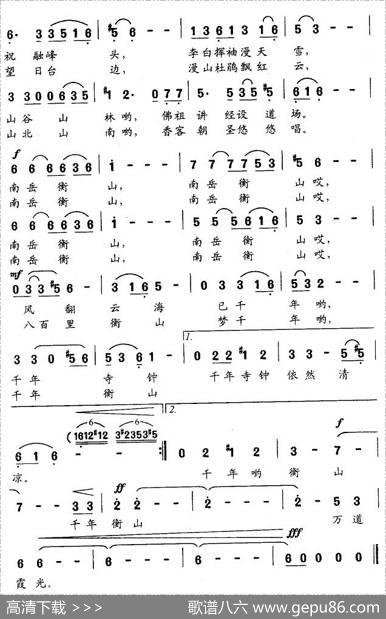 6· 3 3 5 1 6 | #5 6 - - | 5 3· 5 6 6 | 1 3 1 6 3 - |
祝 融峰 头, 李白挥袖漫天 雪,
望 日台 边, 漫山杜鹃飘红 云,
3 3 0 0 6 3 5 | #1 2· 0 7 7 | 5· 5 3 5 #5 | 6 1 6 - - |
山谷 山 林哟, 佛祖 讲 经设 道 场。
山北 山 南哟, 香客 朝 圣悠 悠 唱。
f
6 6 6 6 3 6 | i - - - | 7 7 7 7 5 3 | #5 6 - - |
南岳 衡 山, 南岳 衡 山哎,
南岳 衡 山, 南岳 衡 山哎,
6 6 6 6 3 6 | i - - - | 5 5 5 6 1 6 | 5 3 - - |
南岳 衡 山, 南岳 衡 山哎,
南岳 衡 山, 南岳 衡 山哎,
mf
0 3 3 #5 6 - | 3 1 6 5 - | 0 3 3 1 6 | 5 3 2 - - |
风 翻 云 海 已 千 年 哟,
八百 里 衡 山 梦 千 年 哟,
1.
3 3 0 #5 6 | 5 3 6 1 - | 0 2 2 #1 2 | 3 3 - 5 #5 |
千 年 寺 钟 千年寺钟 依然 清
千 年 衡 山
2.
6 6
(1612#12 3#2353#5)
f
6 1 6 - - :‖ 0 2 #1 2 | 3 - - 7 |
凉。 千 年 哟 衡 山
ff
7 - - 3 3 | 2 2 - - | 2 - - - | 2 - 5 3 |
千 年 衡 山 万 道
fff
6 6 - - | 6 - - - | 6 - - - | 6 0 0 0 0 ‖
霞 光。
高清下载 >>> 歌谱八六 www.gepu86.com